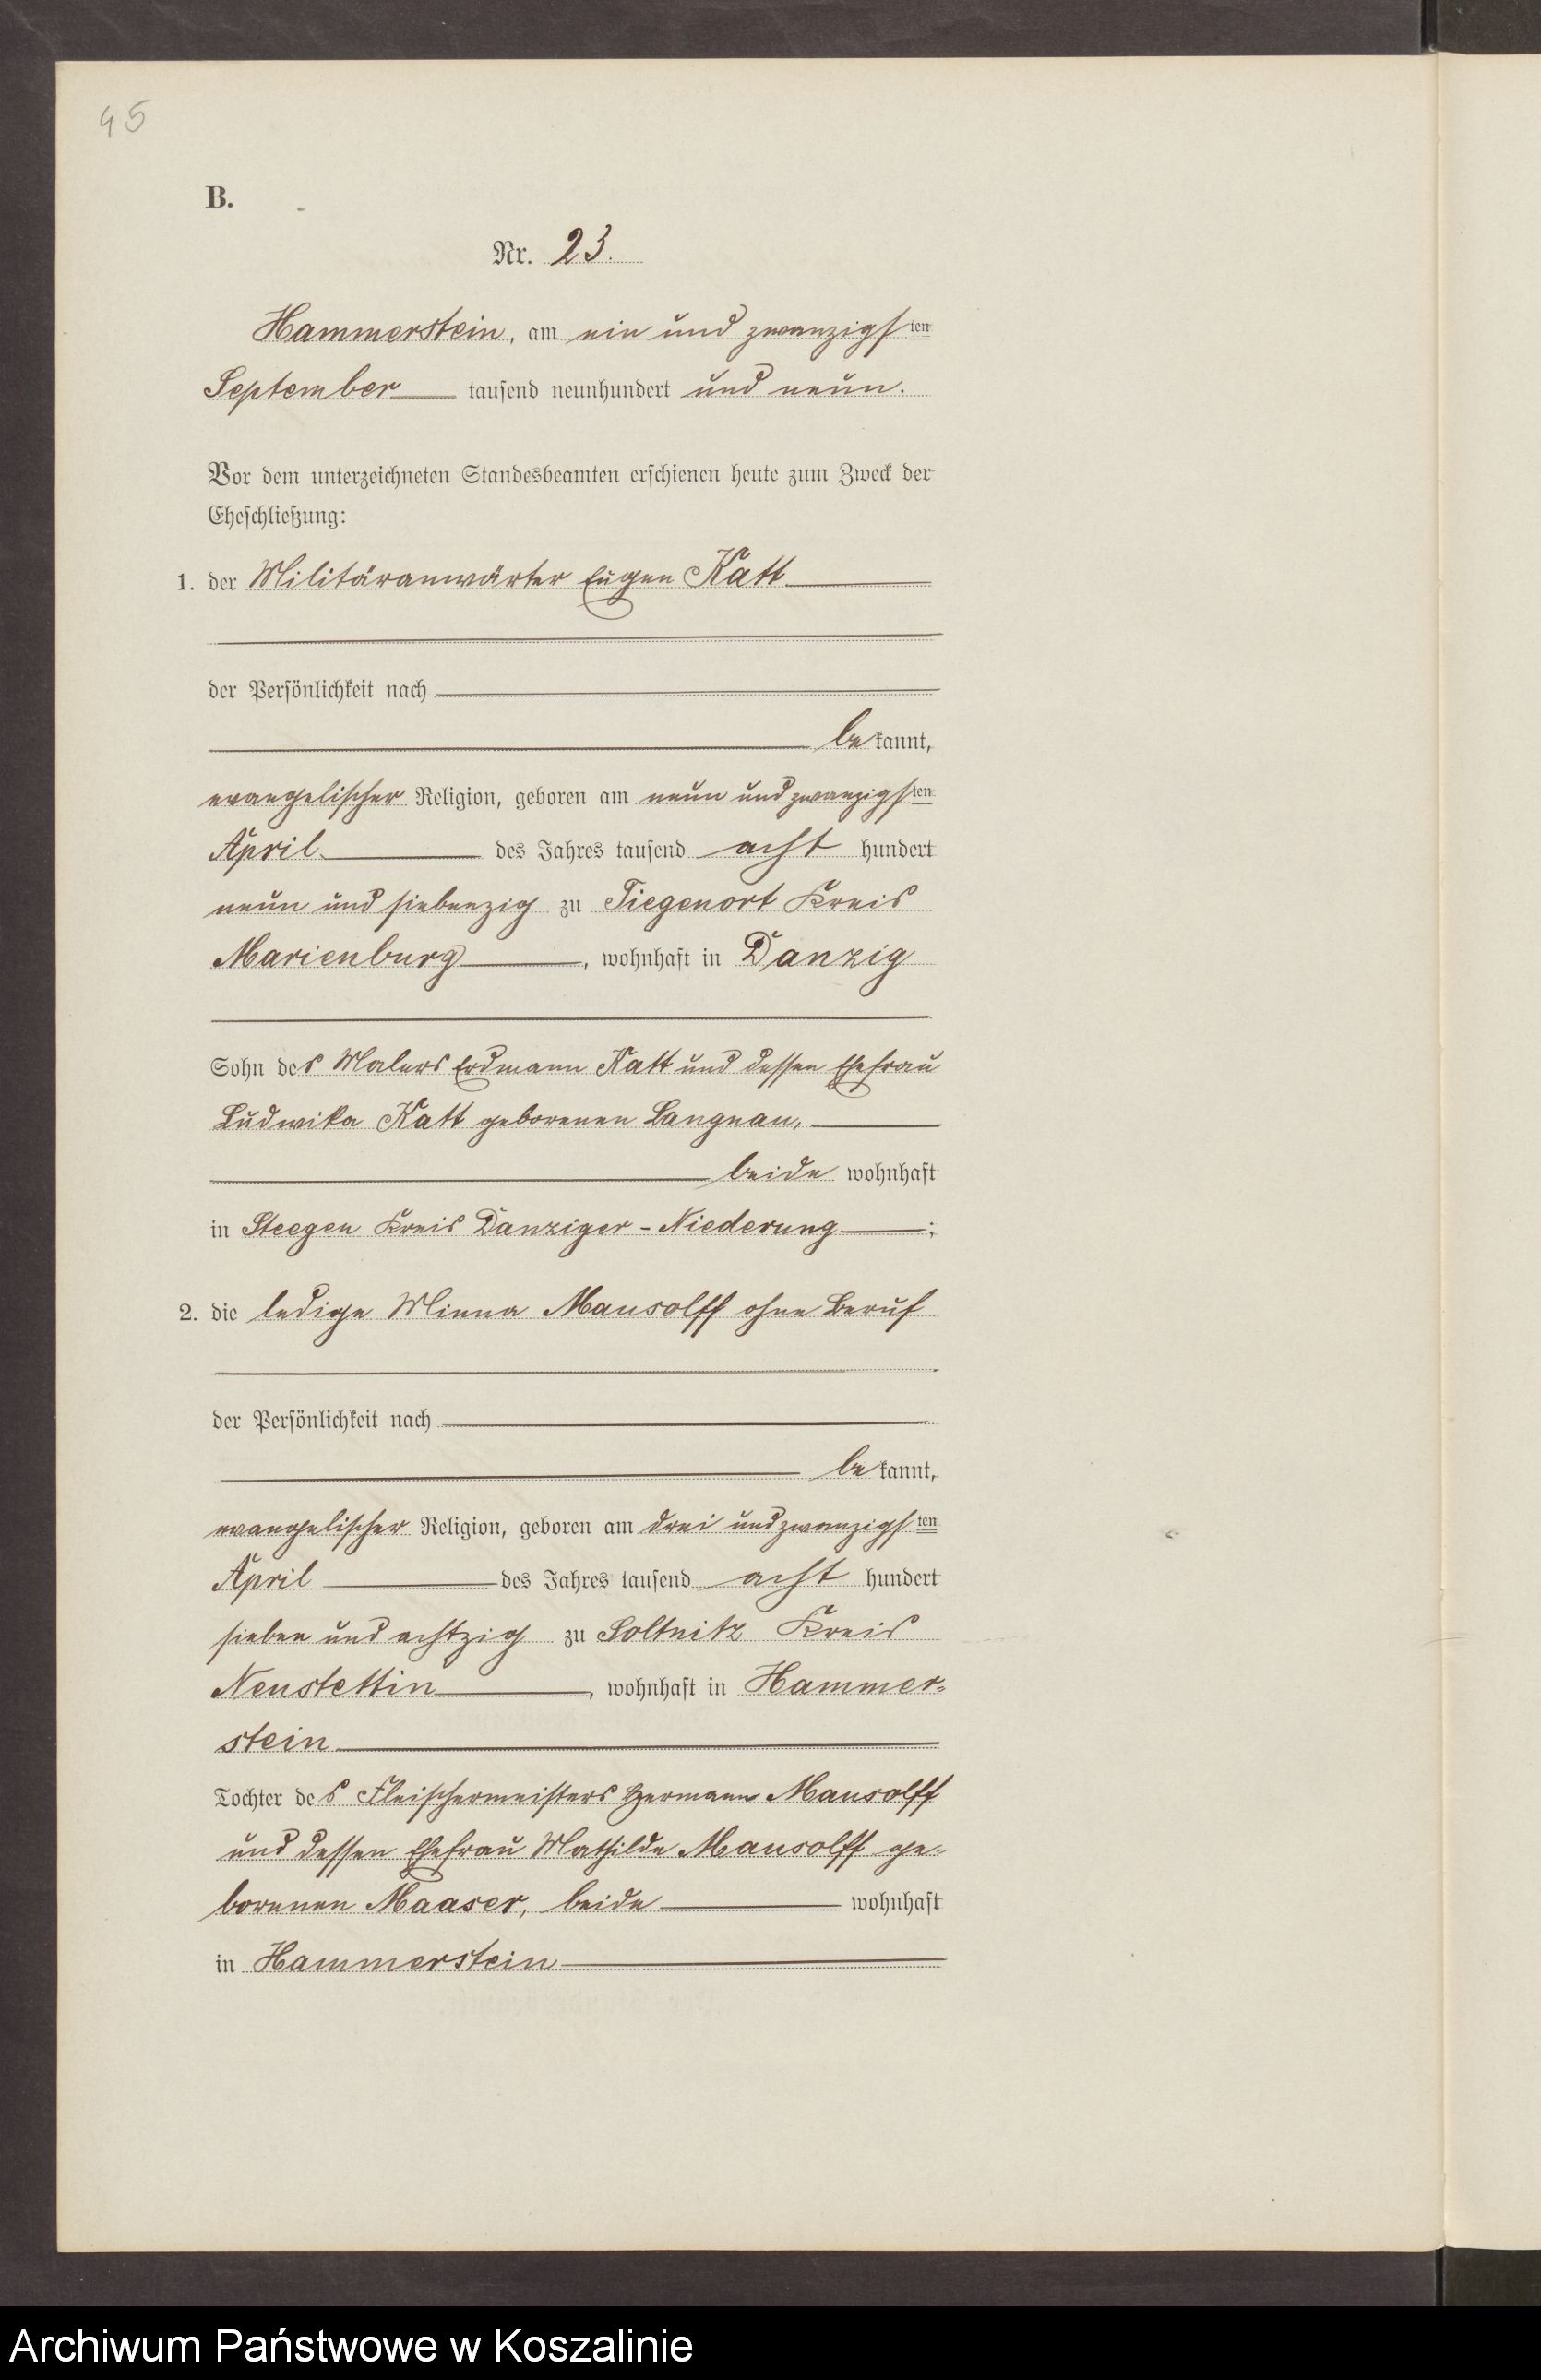 45
B.
Nr. 23.
Hammerstein, am ein und zwanzigsten
September tausend neunhundert und neun.
Vor dem unterzeichneten Standesbeamten erschienen heute zum Zweck der
Eheschließung:
1. der Militäranwärter Eugen Katt
der Persönlichkeit nach
bekannt,
evangelischer Religion, geboren am neun und zwanzigsten
April des Jahres tausend acht hundert
neun und siebenzig zu Tiegenort Kreis
Marienburg, wohnhaft in Danzig
Sohn des Malers Erdmann Katt und dessen Ehefrau
Ludwika Katt geborenen Langnau,
beide wohnhaft
in Steegen Kreis Danziger-Niederung;
2. die ledige Minna Mansolff ohne Beruf
der Persönlichkeit nach
bekannt,
evangelischer Religion, geboren am drei und zwanzigsten
April des Jahres tausend acht hundert
sieben und achtzig zu Soltnitz Kreis
Neustettin, wohnhaft in Hammer-
stein
Tochter des Fleischermeisters Hermann Mansolff
und dessen Ehefrau Mathilde Mansolff ge-
borenen Maaser, beide wohnhaft
in Hammerstein
Archiwum Państwowe w Koszalinie